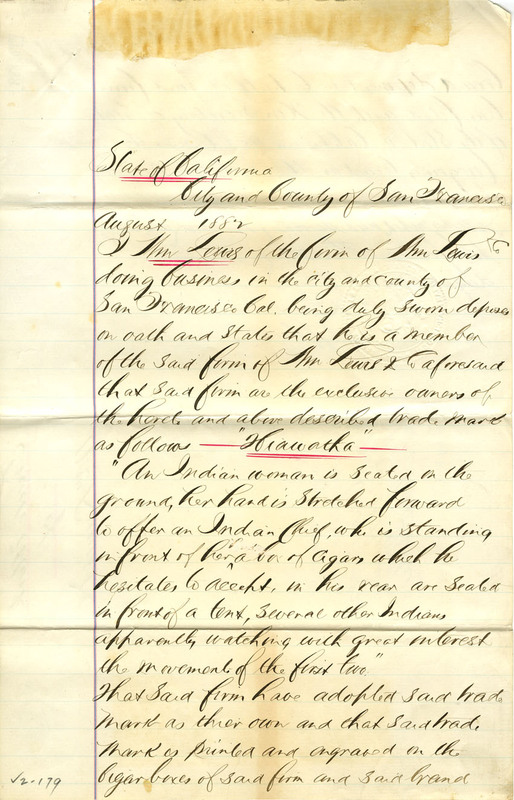 State of California
City and County of San Francisco
August 1882
I Wm Lewis of the firm of Wm Lewis & Co
doing business in the city and county of
San Francisco Cal. being duly sworn deposes
on oath and states that he is a member
of the said firm of Wm Lewis & Co aforesaid
that said firm are the exclusive owners of
the hereto and above described trade mark
as follows — "Hiawatha" —
"An Indian woman is seated on the
ground, her hand is stretched forward
to offer an Indian Chief, who is standing
in front of her a box of cigars which he
hesitates to accept, in his rear are seated
in front of a tent, several other Indians
apparently watching with great interest
the movement of the first two."
That said firm have adopted said trade
mark as their own and that said trade
mark is printed and engraved on the
cigar boxes of said firm and said brand
52-179